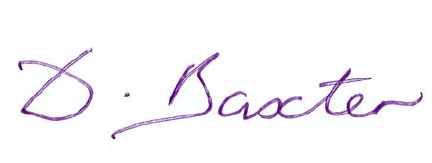 D. Baxter